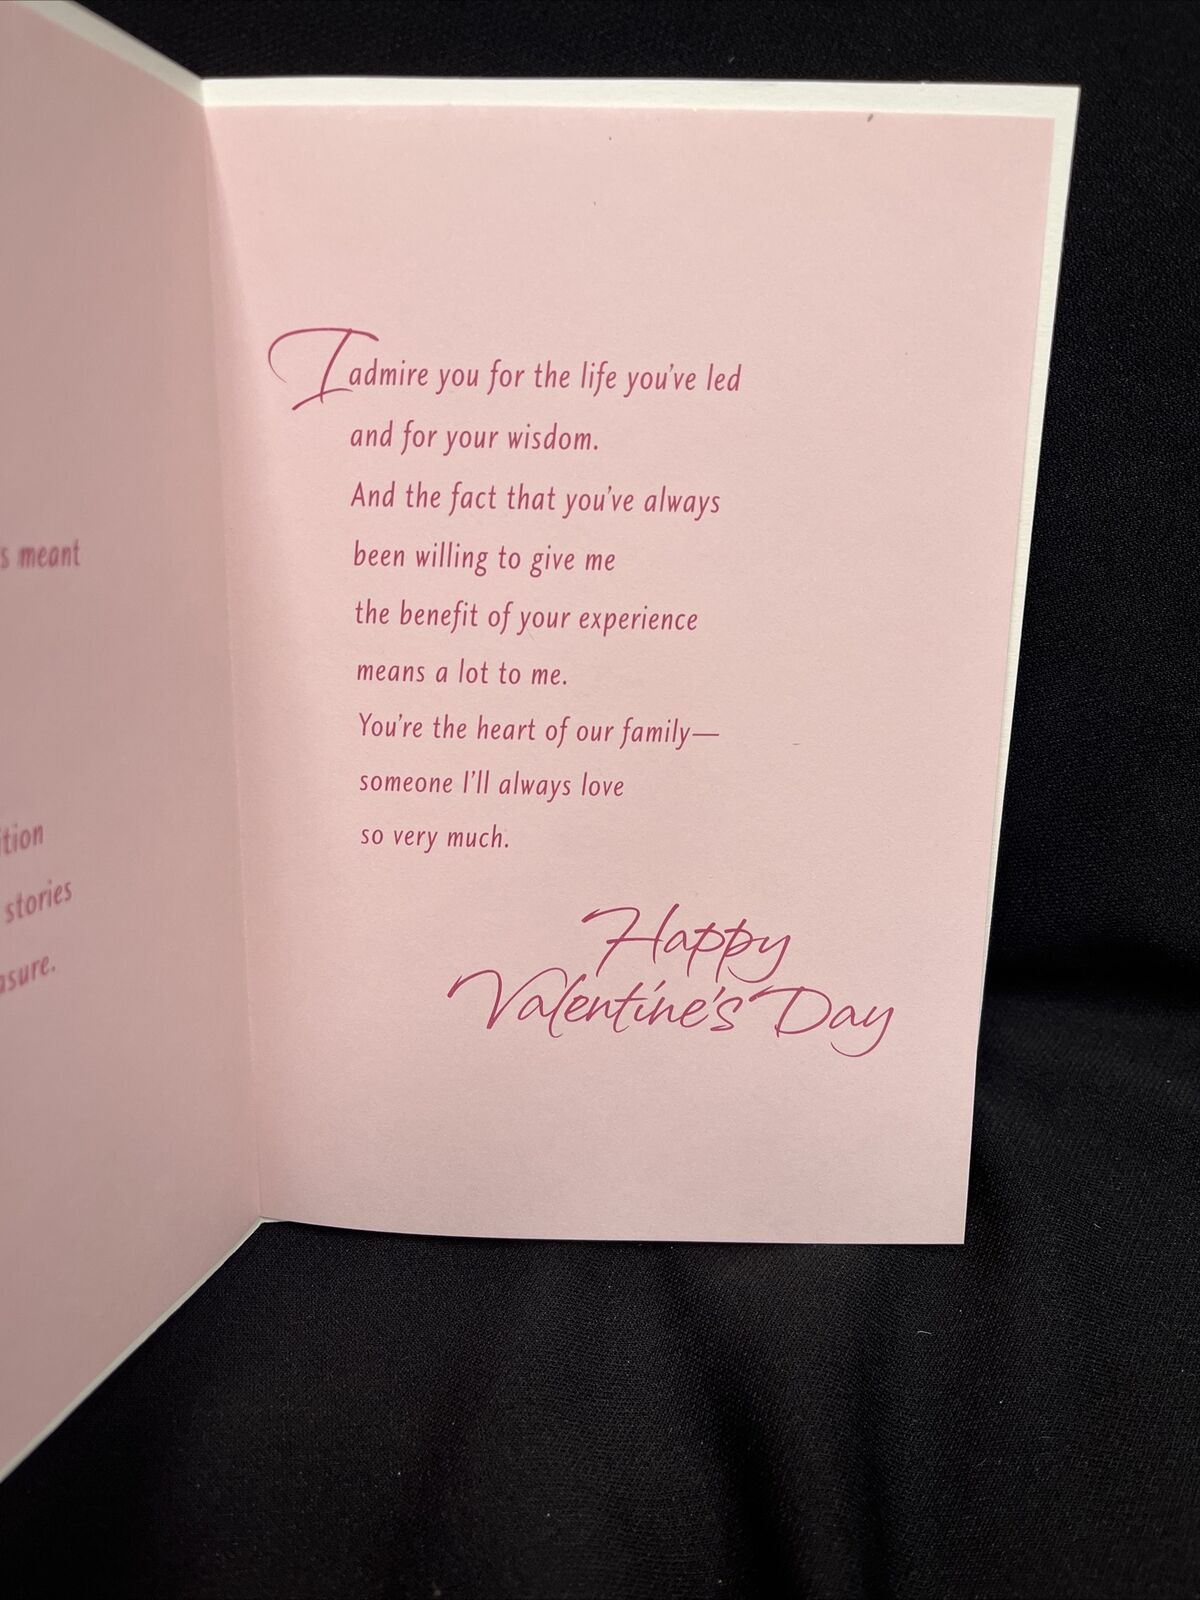 meant
stories
I admire you for the life you've led
and for your wisdom.
And the fact that you've always
been willing to give me
the benefit of your experience
means a lot to me.
You're the heart of our family—
someone I'll always love
so very much.
Happy
Valentine's Day